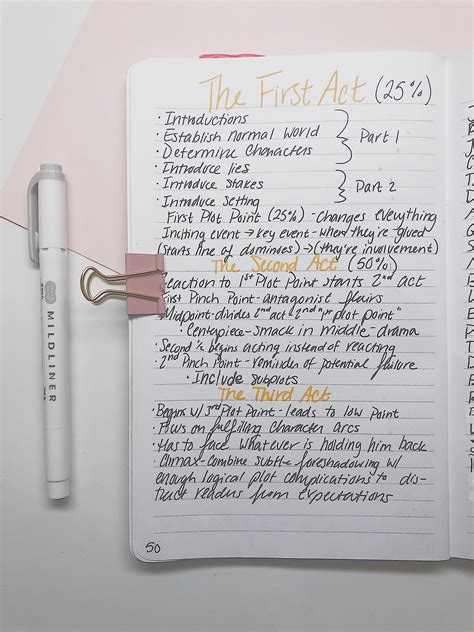 The First Act (25%)
• Introductions
• Establish normal world
• Determine Characters
Part 1
• Introduce lies
• Introduce Stakes
• Introduce Setting
Part 2
First Plot Point (25%) - Changes everything
Inciting event → Key event - when they're glued
(Starts line of dominoes) → (they're involvement)
The Second Act (50%)
Reaction to 1st Plot Point starts 2nd act
First Pinch Point - antagonist flairs
Midpoint - divides 2nd act 2nd plot point"
• Centerpiece - smack in middle - drama
• Second ½ begins acting instead of reacting
• 2nd Pinch Point - reminder of potential failure
• Include subplots
The Third Act
• Begins w/ 3rd Plot Point - leads to low point
• Focus on fulfilling character arcs
• Has to face whatever is holding him back
• Climax - combine subtle foreshadowing w/
enough logical plot complications to dis-
tract readers from expectations
50
MILDLINER